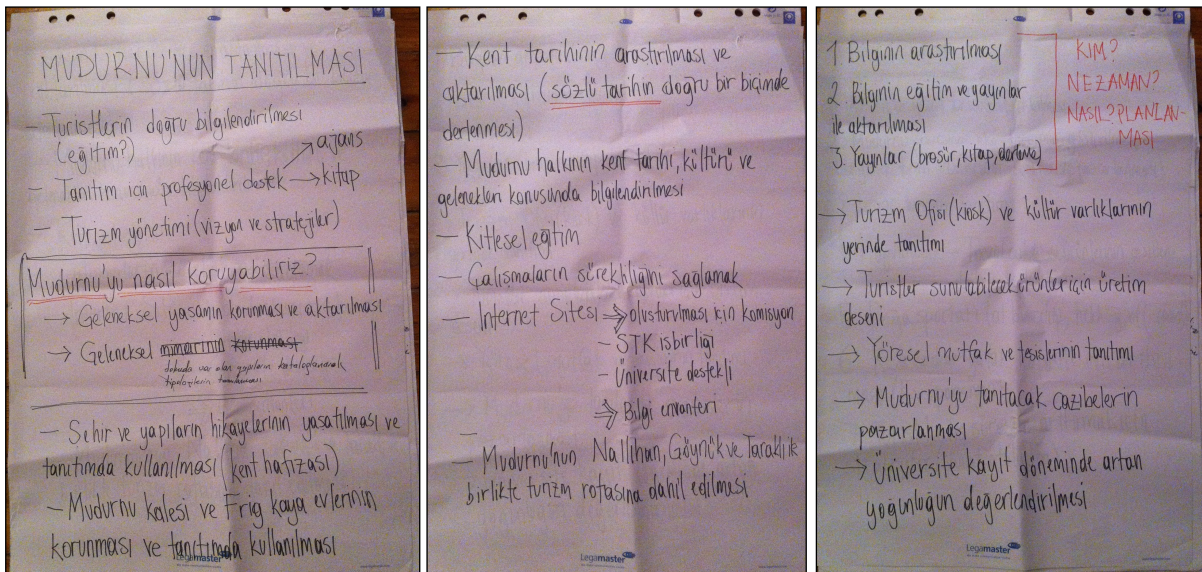 MUDURNU'NUN TANITILMASI
— Turistlerin doğru bilgilendirilmesi
(eğitim?)
→ ajans
— Tanıtım için profesyonel destek → kitap
— Turizm yönetimi (vizyon ve stratejiler)
Mudurnu'yu nasıl koruyabiliriz?
→ Geleneksel yaşamın korunması ve aktarılması
→ Geleneksel mimarinin korunması
dokuda var olan yapıların kataloglanarak
tipolojilerin
— Şehir ve yapıların hikayelerinin yaşatılması ve
tanıtımda kullanılması (kent hafızası)
— Mudurnu kalesi ve Frig kaya evlerinin
korunması ve tanıtımda kullanılması
Legamaster
— Kent tarihinin araştırılması ve
aktarılması (sözlü tarihin doğru bir biçimde
derlenmesi)
— Mudurnu halkının kent tarihi, kültürü ve
gelenekleri konusunda bilgilendirilmesi
— Kitlesel eğitim
— Çalışmaların sürekliliğini sağlamak
— Internet Sitesi ⇒ oluşturulması için komisyon
- STK işbirliği
- Üniversite destekli
⇒ Bilgi envanteri
— Mudurnu'nun Nallıhan, Göynük ve Taraklı ile
birlikte turizm rotasına dahil edilmesi
Legamaster
1 Bilginin araştırılması
2. Bilginin eğitim ve yayınlar
ile aktarılması
3. Yayınlar (broşür, kitap, derleme)
KİM?
NE ZAMAN?
NASIL? PLANLAN-
MASI
→ Turizm Ofisi (kiosk) ve kültür varlıklarının
yerinde tanıtımı
→ Turistlur sunulabilecek ürünler için üretim
deseni
→ Yöresel mutfak ve tesislerinin tanıtımı
→ Mudurnu'yu tanıtacak cazibelerin
pazarlanması
→ Üniversite kayıt döneminde artan
yoğunluğun değerlendirilmesi
Legamaster